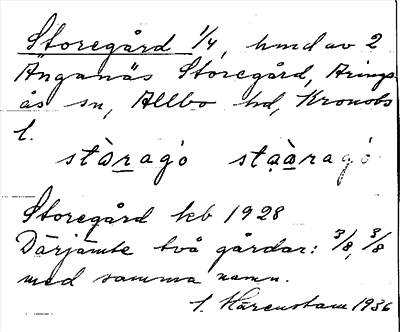 Storegård 1/4, hmd av 2
Änganäs Storegård, Arings
ås sn, Allbo hd, Kronobs
l.
stàragó stạàragó
Storegård kb 1928
Därjämte två gårdar: 3/8, 3/8
med samma namn.
1936